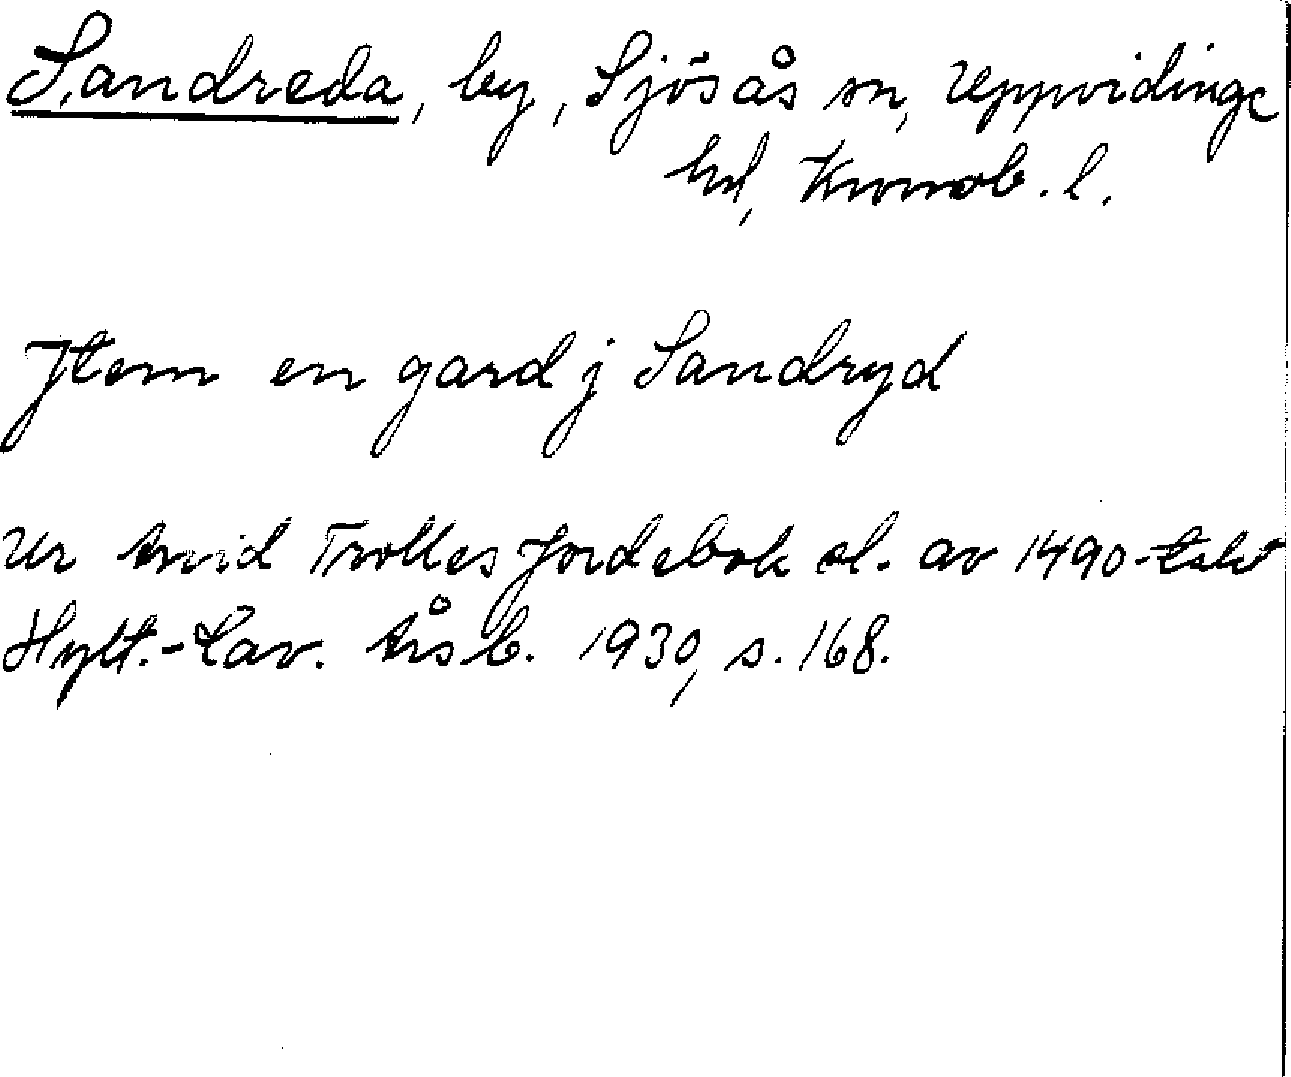 Sandreda, by, Sjösås sn, Uppvidinge
hd, Kronob. l.
Jtem en gard j Sandryd
Ur Arvid Trolles Jordebok sl. av 1490-talet
Hylt.-Cav. Årsb. 1930, s. 168.